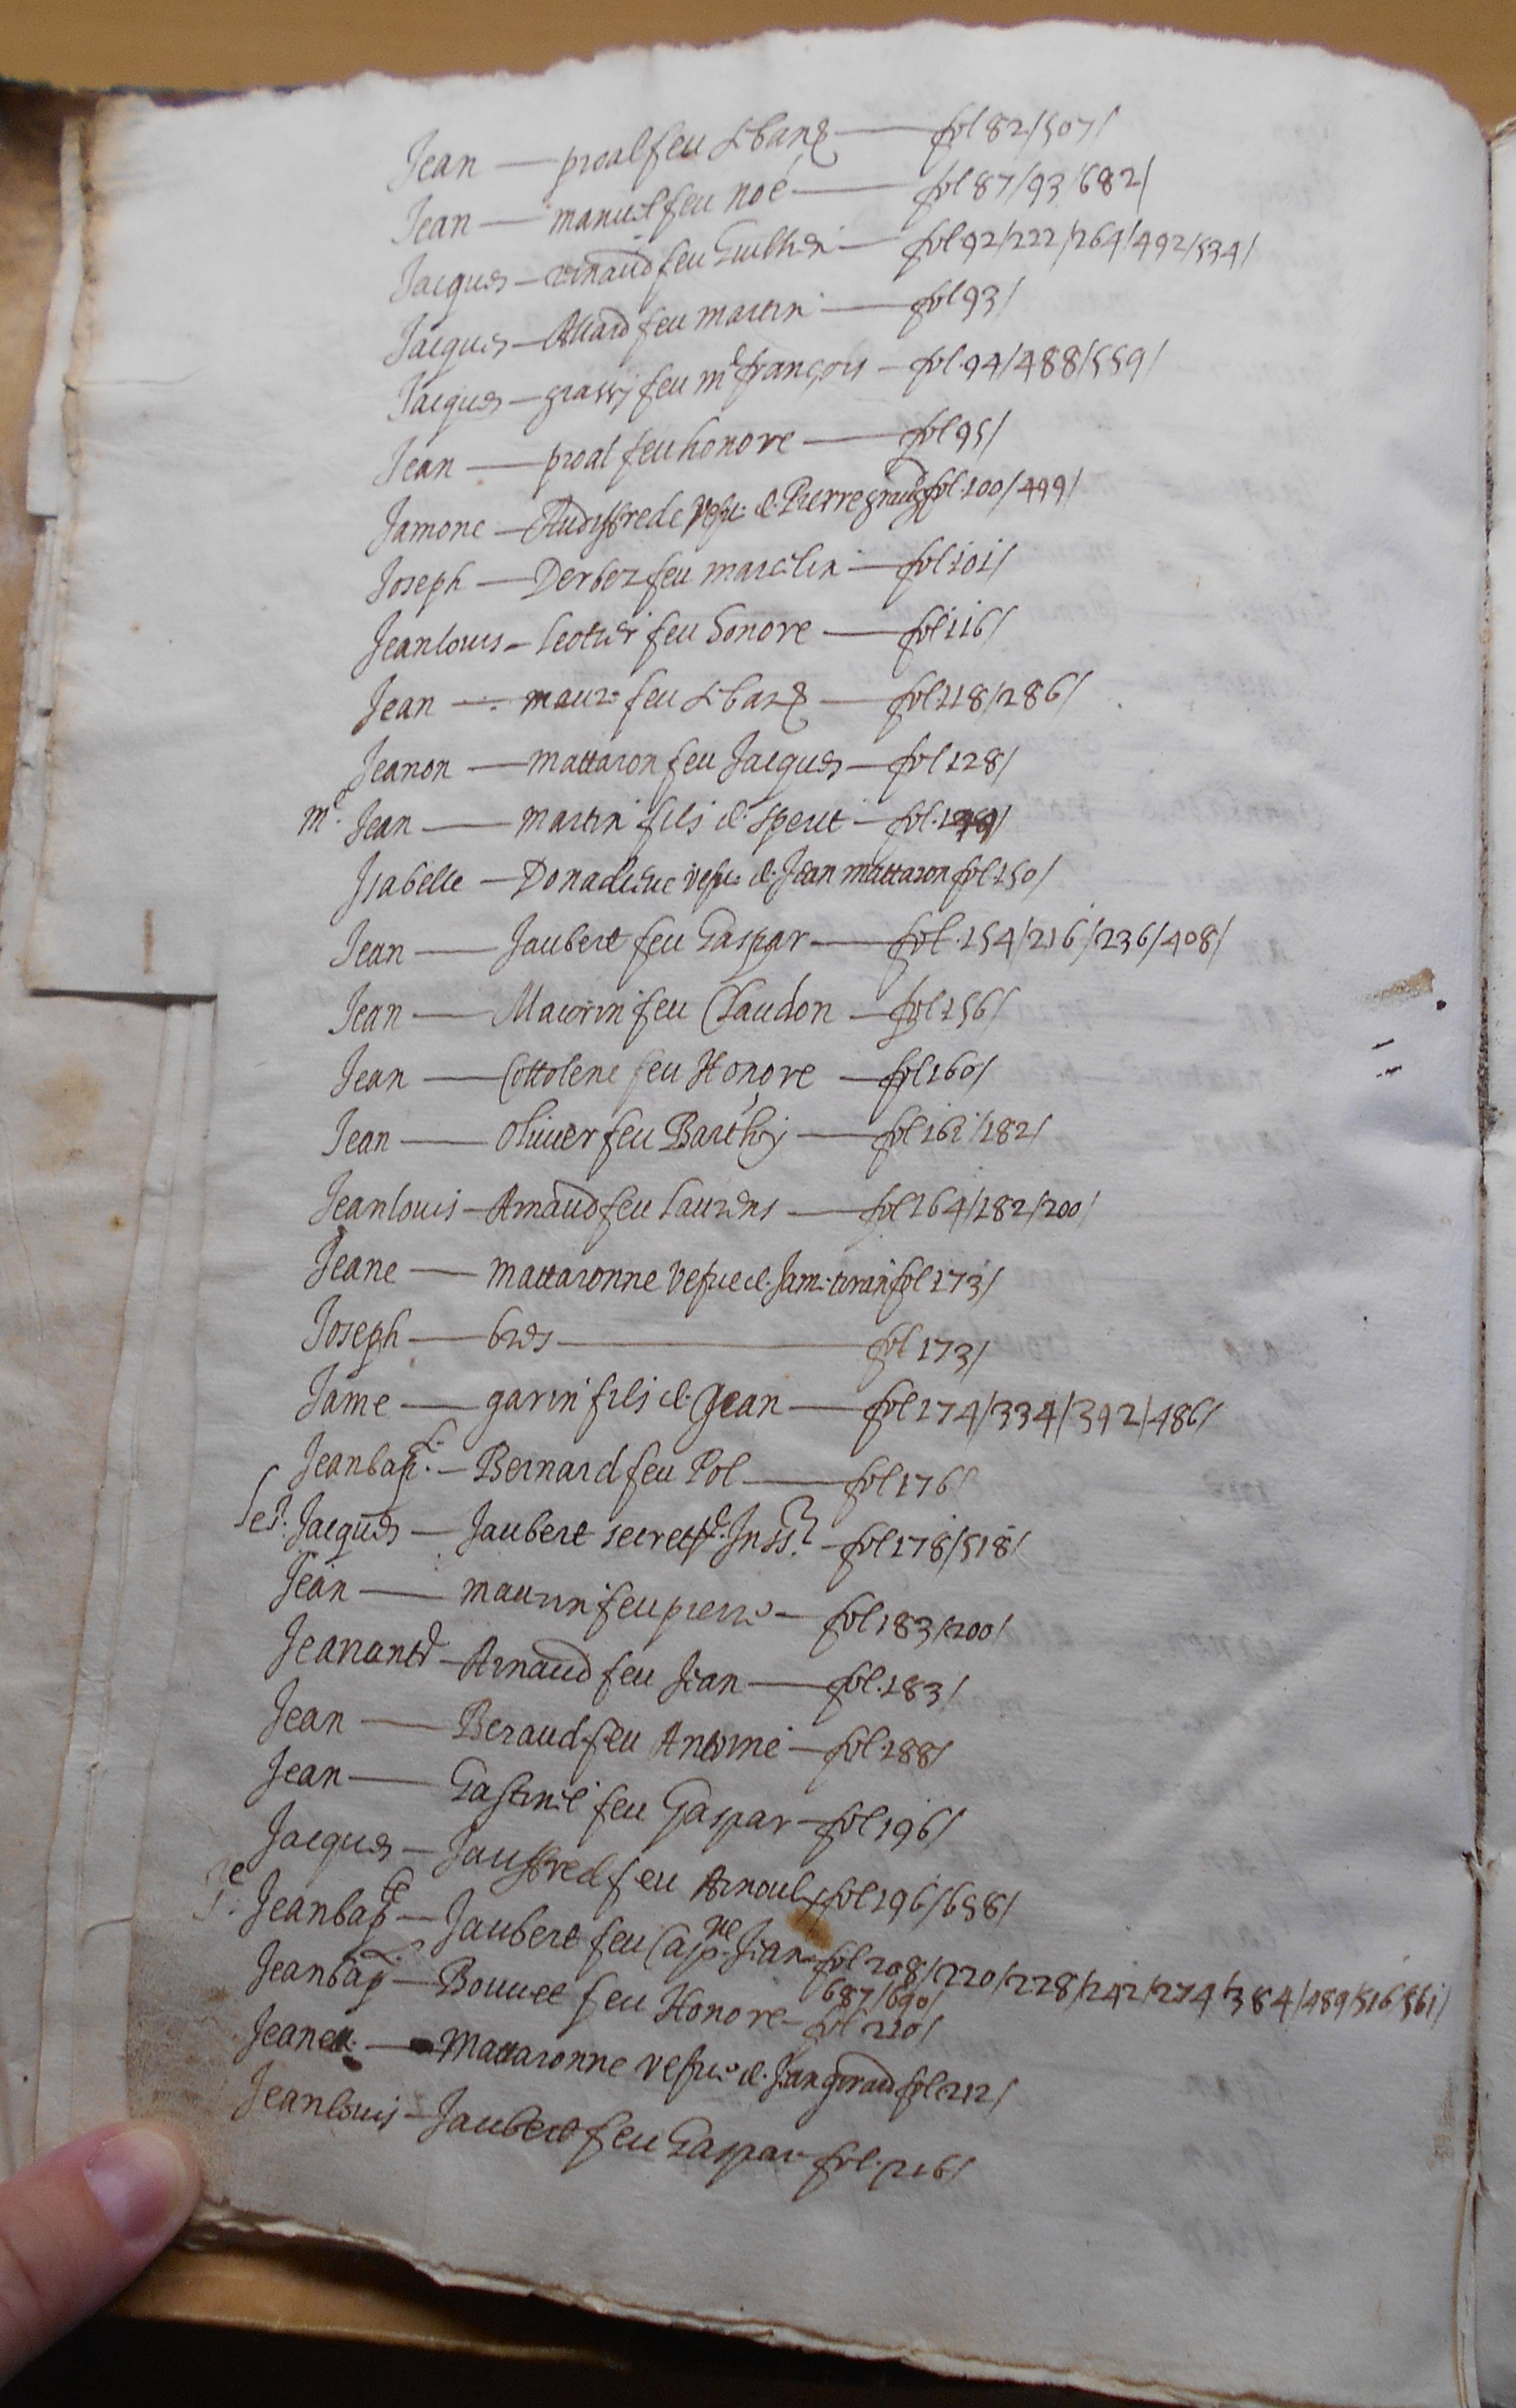 Jean — proal feu — fol 82/507/
Jean — manuel feu noé — fol 87/93/682/
Jacques — arnaud feu Guilhen — fol 92/222/264/492/534/
Jacques — Allard feu martin — fol 93/
Jacques — grassy feu mᵉ françois — fol 94/488/559/
Jean — proal feu honore — fol 95/
Jamone — Audiffrede vefue d. Pierre giraud fol 100/499/
Joseph — Derbez feu marcelin — fol 101/
Jeanlouis — leotier feu honore — fol 116/
Jean — maure feu — fol 118/286/
Jeanon — mattaron feu Jacques — fol 128/
mᵉ. Jean — martin fils d. sperit — fol.
Isabelle — Donadieue vefue d. Jean mattaron fol 150/
Jean — Jaubert feu Gaspar — fol. 154/216/236/408/
Jean — Maurin feu Claudon — fol 156/
Jean — Cottolene feu Honore — fol 160/
Jean — Oliuier feu Barthy — fol 161/182/
Jeanlouis — Arnaud feu laurens — fol 164/182/200/
Jeane — mattaronne vefue d. Jame tiran fol 173/
Joseph — bres — fol 173/
Jame — garin fils d. Jean — fol 174/334/392/486/
Jeanbapᵗ. — Bernard feu Pol — fol 176/
Jacques — Jaubert fol 178/518/
Jean — maurin feu pierre — fol 183/200/
Jeanantᵉ — Arnaud feu Jean — fol. 183/
Jean — Beraud feu Antoine — fol 188/
Jean — Gastinel feu Gaspar — fol 196/
Jacques — Jauffred feu Arnoulx fol 196/658/
Sʳ. Jeanbapᵗᵉ — Jaubert feu Capⁿᵉ Jean fol 208/220/228/242/274/384/489/516/561/
687/690/
Jeanbapᵗ — Bouuet feu Honore — fol 210/
Jeane — Mattaronne vefue d. Jean giraud fol 212/
Jeanlouis — Jaubert feu Gaspar fol. 216/